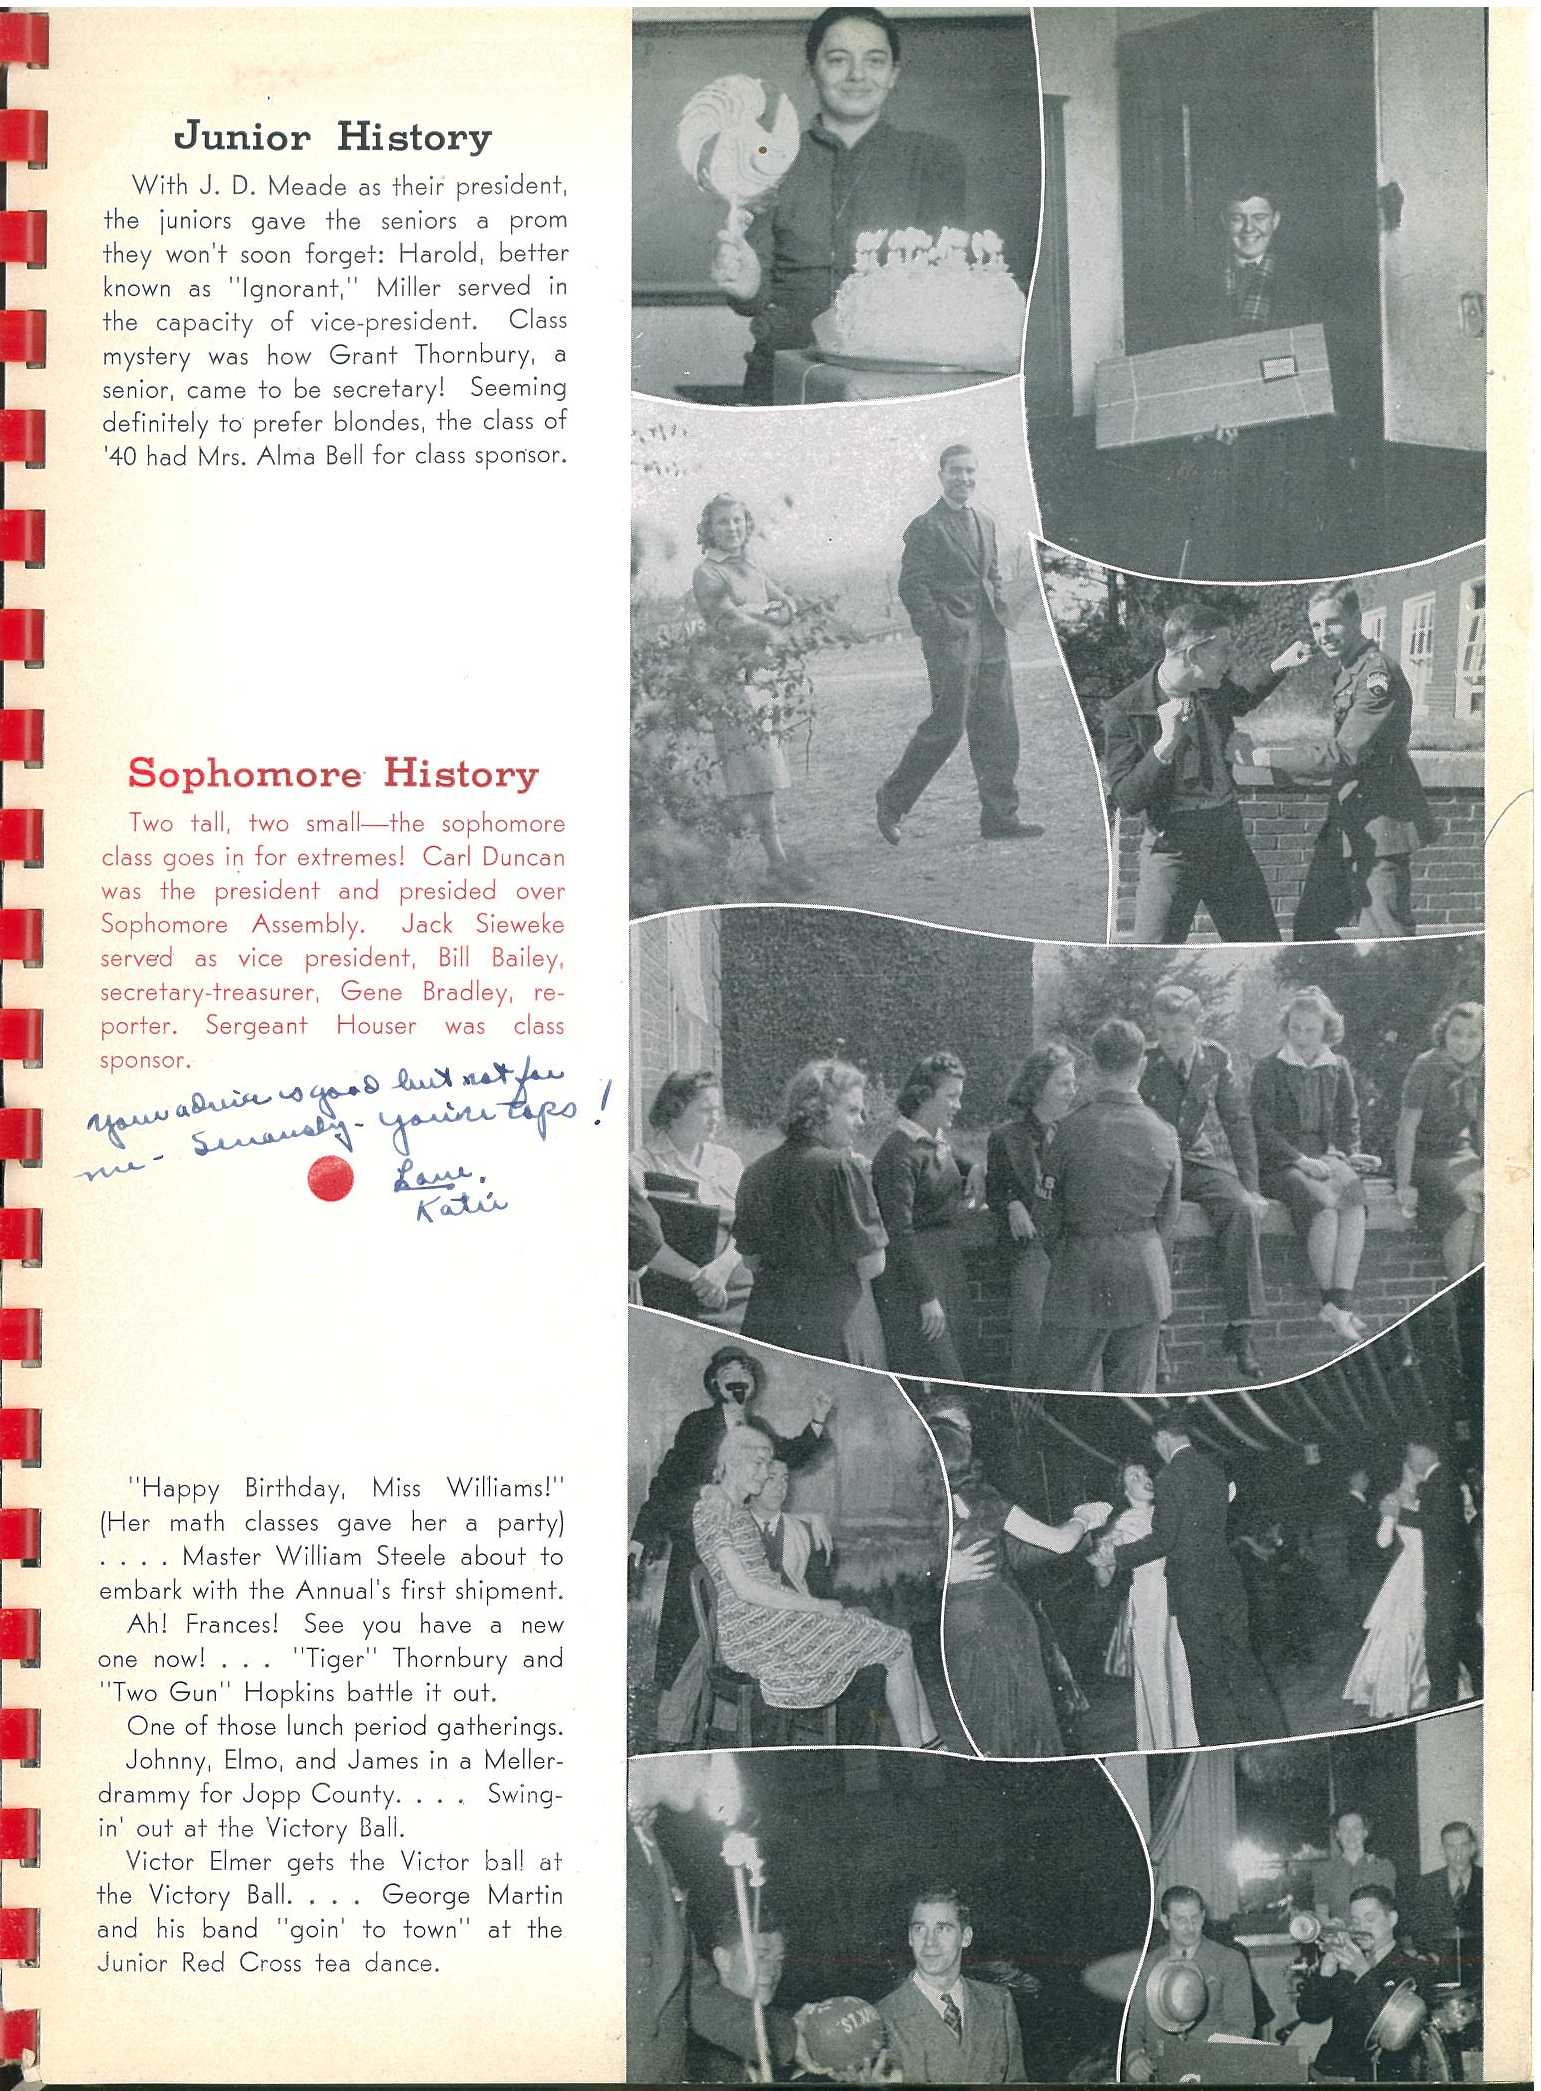 Junior History
With J. D. Meade as their president,
the juniors gave the seniors a prom
they won't soon forget: Harold, better
known as "Ignorant," Miller served in
the capacity of vice-president. Class
mystery was how Grant Thornbury, a
senior, came to be secretary! Seeming
definitely to prefer blondes, the class of
'40 had Mrs. Alma Bell for class sponsor.
Sophomore History
Two tall, two small—the sophomore
class goes in for extremes! Carl Duncan
was the president and presided over
Sophomore Assembly. Jack Sieweke
served as vice president, Bill Bailey,
secretary-treasurer, Gene Bradley, re-
porter. Sergeant Houser was class
sponsor.
Your advice is good but not for
me - Seriously - you're tops!
Love,
Katie
"Happy Birthday, Miss Williams!"
(Her math classes gave her a party)
. . . . Master William Steele about to
embark with the Annual's first shipment.
Ah! Frances! See you have a new
one now! . . . "Tiger" Thornbury and
"Two Gun" Hopkins battle it out.
One of those lunch period gatherings.
Johnny, Elmo, and James in a Meller-
drammy for Jopp County. . . . Swing-
in' out at the Victory Ball.
Victor Elmer gets the Victor ball at
the Victory Ball. . . . George Martin
and his band "goin' to town" at the
Junior Red Cross tea dance.